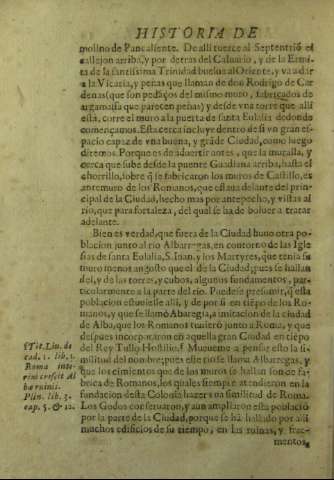 HISTORIA DE
molino de Pancaliente. De allí tuerce al Septentriõ el
callejon arriba, y por detras del Caluario, y de la Ermi
ta de la santissima Trinidad buelue al Oriente, y va a dar
a la Vicaria, y peñas que llaman de don Rodrigo de Car
denas (que son pedaços del mismo muro, fabricados de
argamassa que parecen peñas) y desde vna torre que allí
está, corre el muro a la puerta de santa Eulalia dedonde
començamos. Esta cerca incluye dentro de si vn gran es-
pacio capaz de vna buena, y grãde Ciudad, como luego
diremos. Porque es de aduertir antes, que la muralla, y
cerca que sube desde la puente Guadiana arriba, hasta el
chorrillo, sobre q̃ se fabricaron los muros de Castillo, es
antemuro de los Romanos, que estaua delante del prin-
cipal de la Ciudad, hecho mas por antepecho, y vistas al
rio, que para fortaleza, del qual se ha de boluer a tratar
adelante.
Bien es verdad, que fuera de la Ciudad huuo otra po-
blacion junto al rio Albarregas, en contorno de las Igle
sias de santa Eulalia, S. Iuan, y los Martyres, que tenia su
muro menos angosto que el de la Ciudad; pues se hallan
del, y de las torres, y cubos, algunos fundamentos, par-
ticularmente a la parte del rio. Puedese presumir, q̃ esta
poblacion estuuiesse alli, y de por si en tiẽpo de los Ro-
manos, y que se llamò Abaregia, a imitacion de la ciudad
de Alba, que los Romanos tuuierõ junto a Roma, y que
despues incorporaron en aquella gran Ciudad en tiẽpo
del Rey Tullo Hostilio. ſ Mueueme a pensar esto la si-
militud del nombre; pues este rio se llama Albarregas, y
que los cimientos que de los muros se hallan son de fa-
brica de Romanos, los quales siempre atendieron en la
fundacion desta Colonia hazerla a similitud de Roma.
Los Godos conseruaron, y aun ampliaron esta poblaciõ
por la parte de la Ciudad, porque se ha hallado por alli
muchos edificios de su tiempo, en las ruinas, y frag-
mentos,
ſ Tit. Liu. de
cad. 1. lib. 1.
Roma inte-
rim crescit Al
bæ ruinis.
Plin. lib. 3.
cap. 5. & 12.